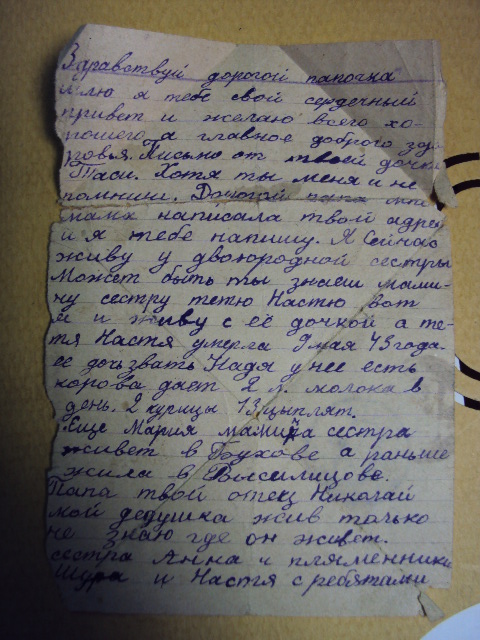 Здравствуй дорогой папочка
шлю я тебе свой сердечный
привет и желаю всего хо-
рошего а главное доброго здо-
ровья. Письмо от твоей дочки
Таси. Хотя ты меня и не
помниш. Дорогой папа
мама написала твой адрес
и я тебе напишу. Я сейчас
живу у двоюродной сестры
Может быть ты знаеш мами-
ну сестру тетю Настю вот
я и живу с её дочкой а те-
тя Настя умерла 9 мая 45 года
её дочь звать Надя у нее есть
корова дает 2 л. молока в
день. 2 курицы 13 цыплят.
Еще Мария мамина сестра
живет в Глухове а раньше
жила в Высилицове.
Папа твой отец Николай
мой дедушка жив только
не знаю где он живет.
сестра Анна и пляменники
Шура и Настя с ребятами